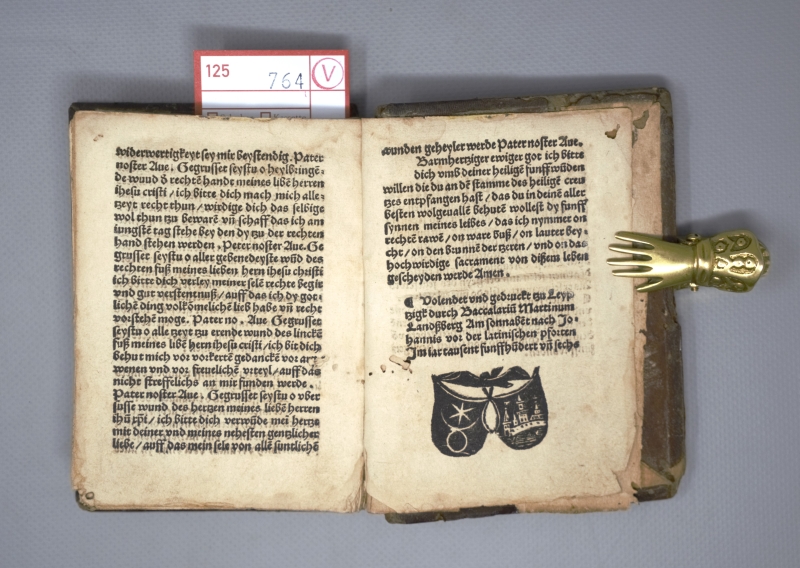 125
764
V
widerwertigkeyt sey mir beystendig. Pater
noster Aue. Gegrusset seystu o heylbringē⸗
de wūd d̕ rechtē hande meines libē herren
ihesu cristi / ich bitte dich mach mich alle⸗
zeyt recht thun / wirdige dich das selbige
wol thun zu bewarē vn̄ schaff das ich am
iungstē tag stehe bey den dy zu der rechten
hand stehen werden. Pater noster Aue. Ge
grusset seystu o aller gebenedeyste wūd des
rechten fuß meines lieben hern ihesu christi
ich bitte dich verley meiner selē rechte begir
vnd gut verstentnuß / auff das ich dy got⸗
lichē ding volkōmelichē lieb habe vn̄ recht
vorstehē moge. Pater no. Aue Gegrusset
seystu o alle tzeyt zu erende wund des linckē
fuß meines libē hern ihesu cristi / ich bit dich
behut mich vor vorkertē gedanckē vor
wenen vnd vor freuelichē vrteyl / auff das
nicht streffelichs an mir funden werde.
Pater noster Aue. Gegrusset seystu o vber
susse wund des herzen meines liebē herren
ihū xp̄i / ich bitte dich verwūde mei hertze
mit deiner vnd meines nehesten gentzlicher
liebe / auff das mein sele von allē suntlichē
wunden geheyler werde Pater noster Aue.
Barmhertziger ewiger got ich bitte
dich vmb deiner heiligē funff wūden
willen die du an dē stamme des heiligē creu
tzes entpfangen hast / das du in deinē aller
besten wolgeuallē behutē wollest dy funff
synnen meines leibes / das ich nymmer on
rechtē rawē / on ware buß / on lauter bey⸗
cht / on den brunnē der tzeren / vnd on das
hochwirdige sacrament von dißem leben
gescheyden werde Amen.
¶ Volendet vnd gedruckt zu Leyp
tzigk durch Baccalariū Martinum
Landßberg Am sonnabēt nach Jo⸗
hannis vor der latinischen pforten
Im iar tausent funffhūdert vn̄ sechs